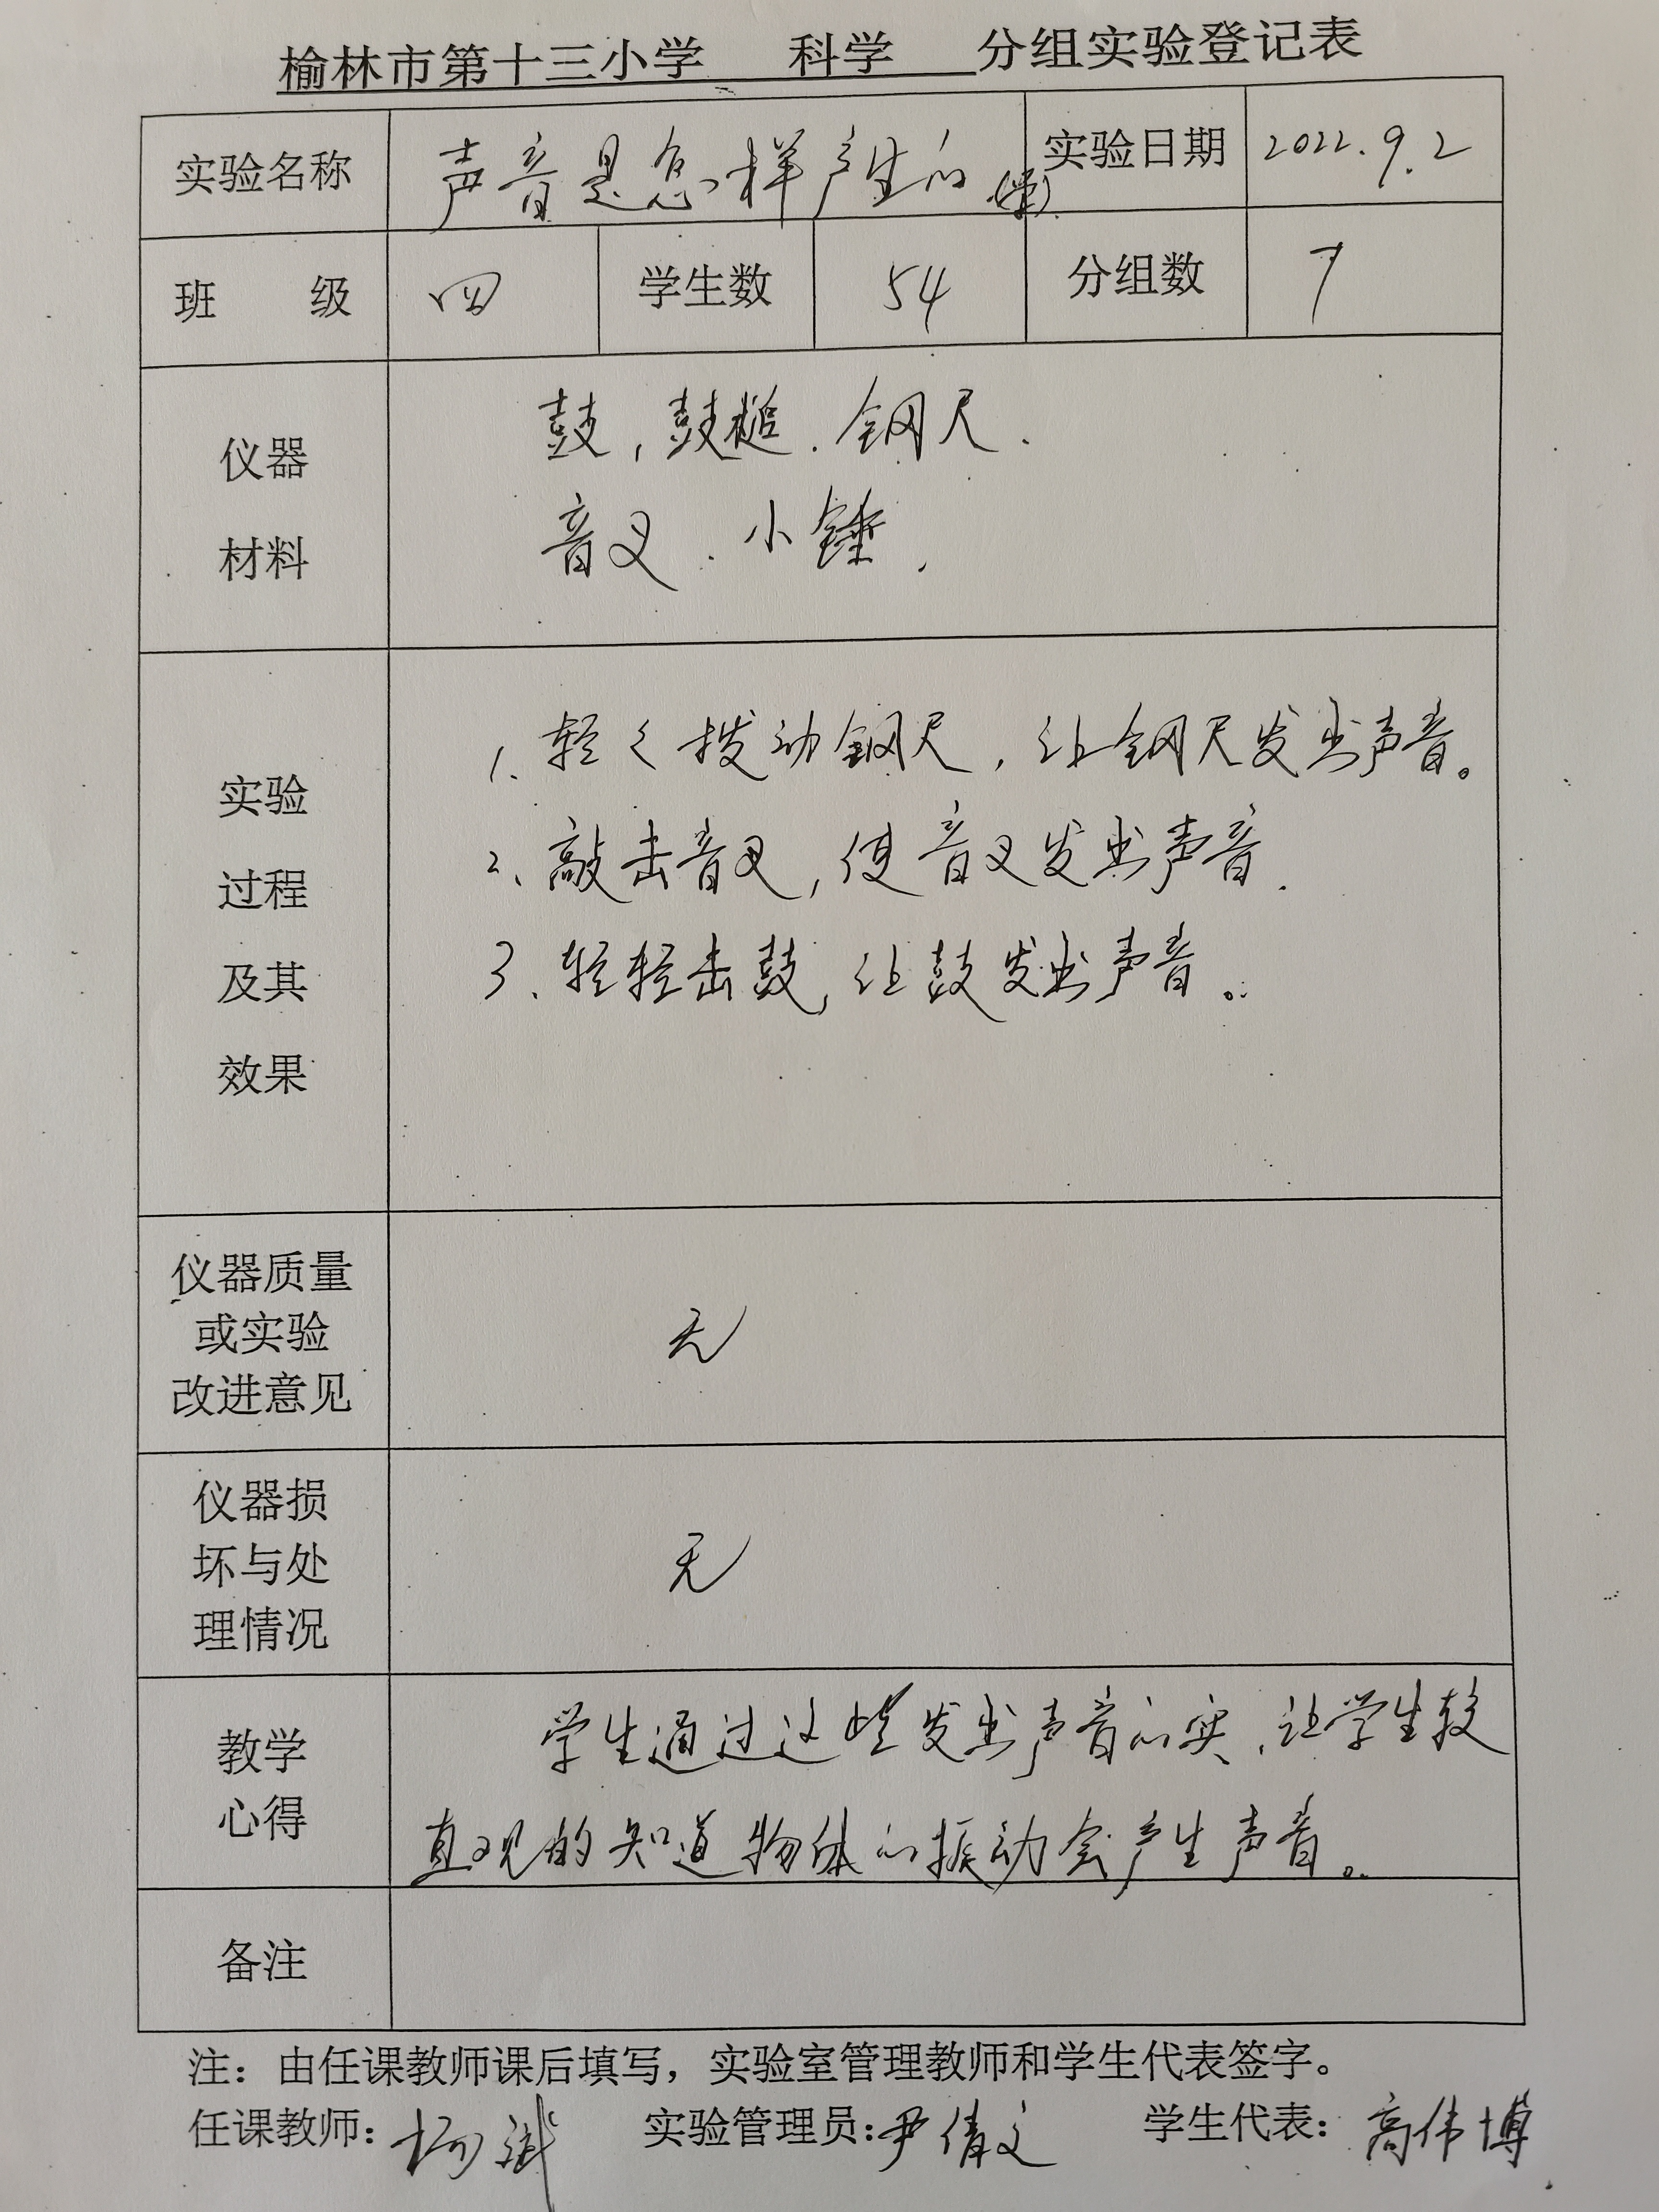 榆林市第十三小学 科学 分组实验登记表
实验名称 声音是怎样产生的 实验日期 2022.9.2
班 级 四 学生数 54 分组数 7
仪器
材料
鼓,鼓槌.钢尺.
音叉.小锤.
实验
过程
及其
效果
1、轻々拨动钢尺,让钢尺发出声音。
2、敲击音叉,使音叉发出声音.
3、轻轻击鼓,让鼓发出声音。
仪器质量
或实验
改进意见
无
仪器损
坏与处
理情况
无
教学
心得
学生通过这些发出声音的实、让学生较
直观的知道物体的振动会产生声音。
备注
注:由任课教师课后填写,实验室管理教师和学生代表签字。
任课教师: 实验管理员:尹倩文 学生代表:高伟博